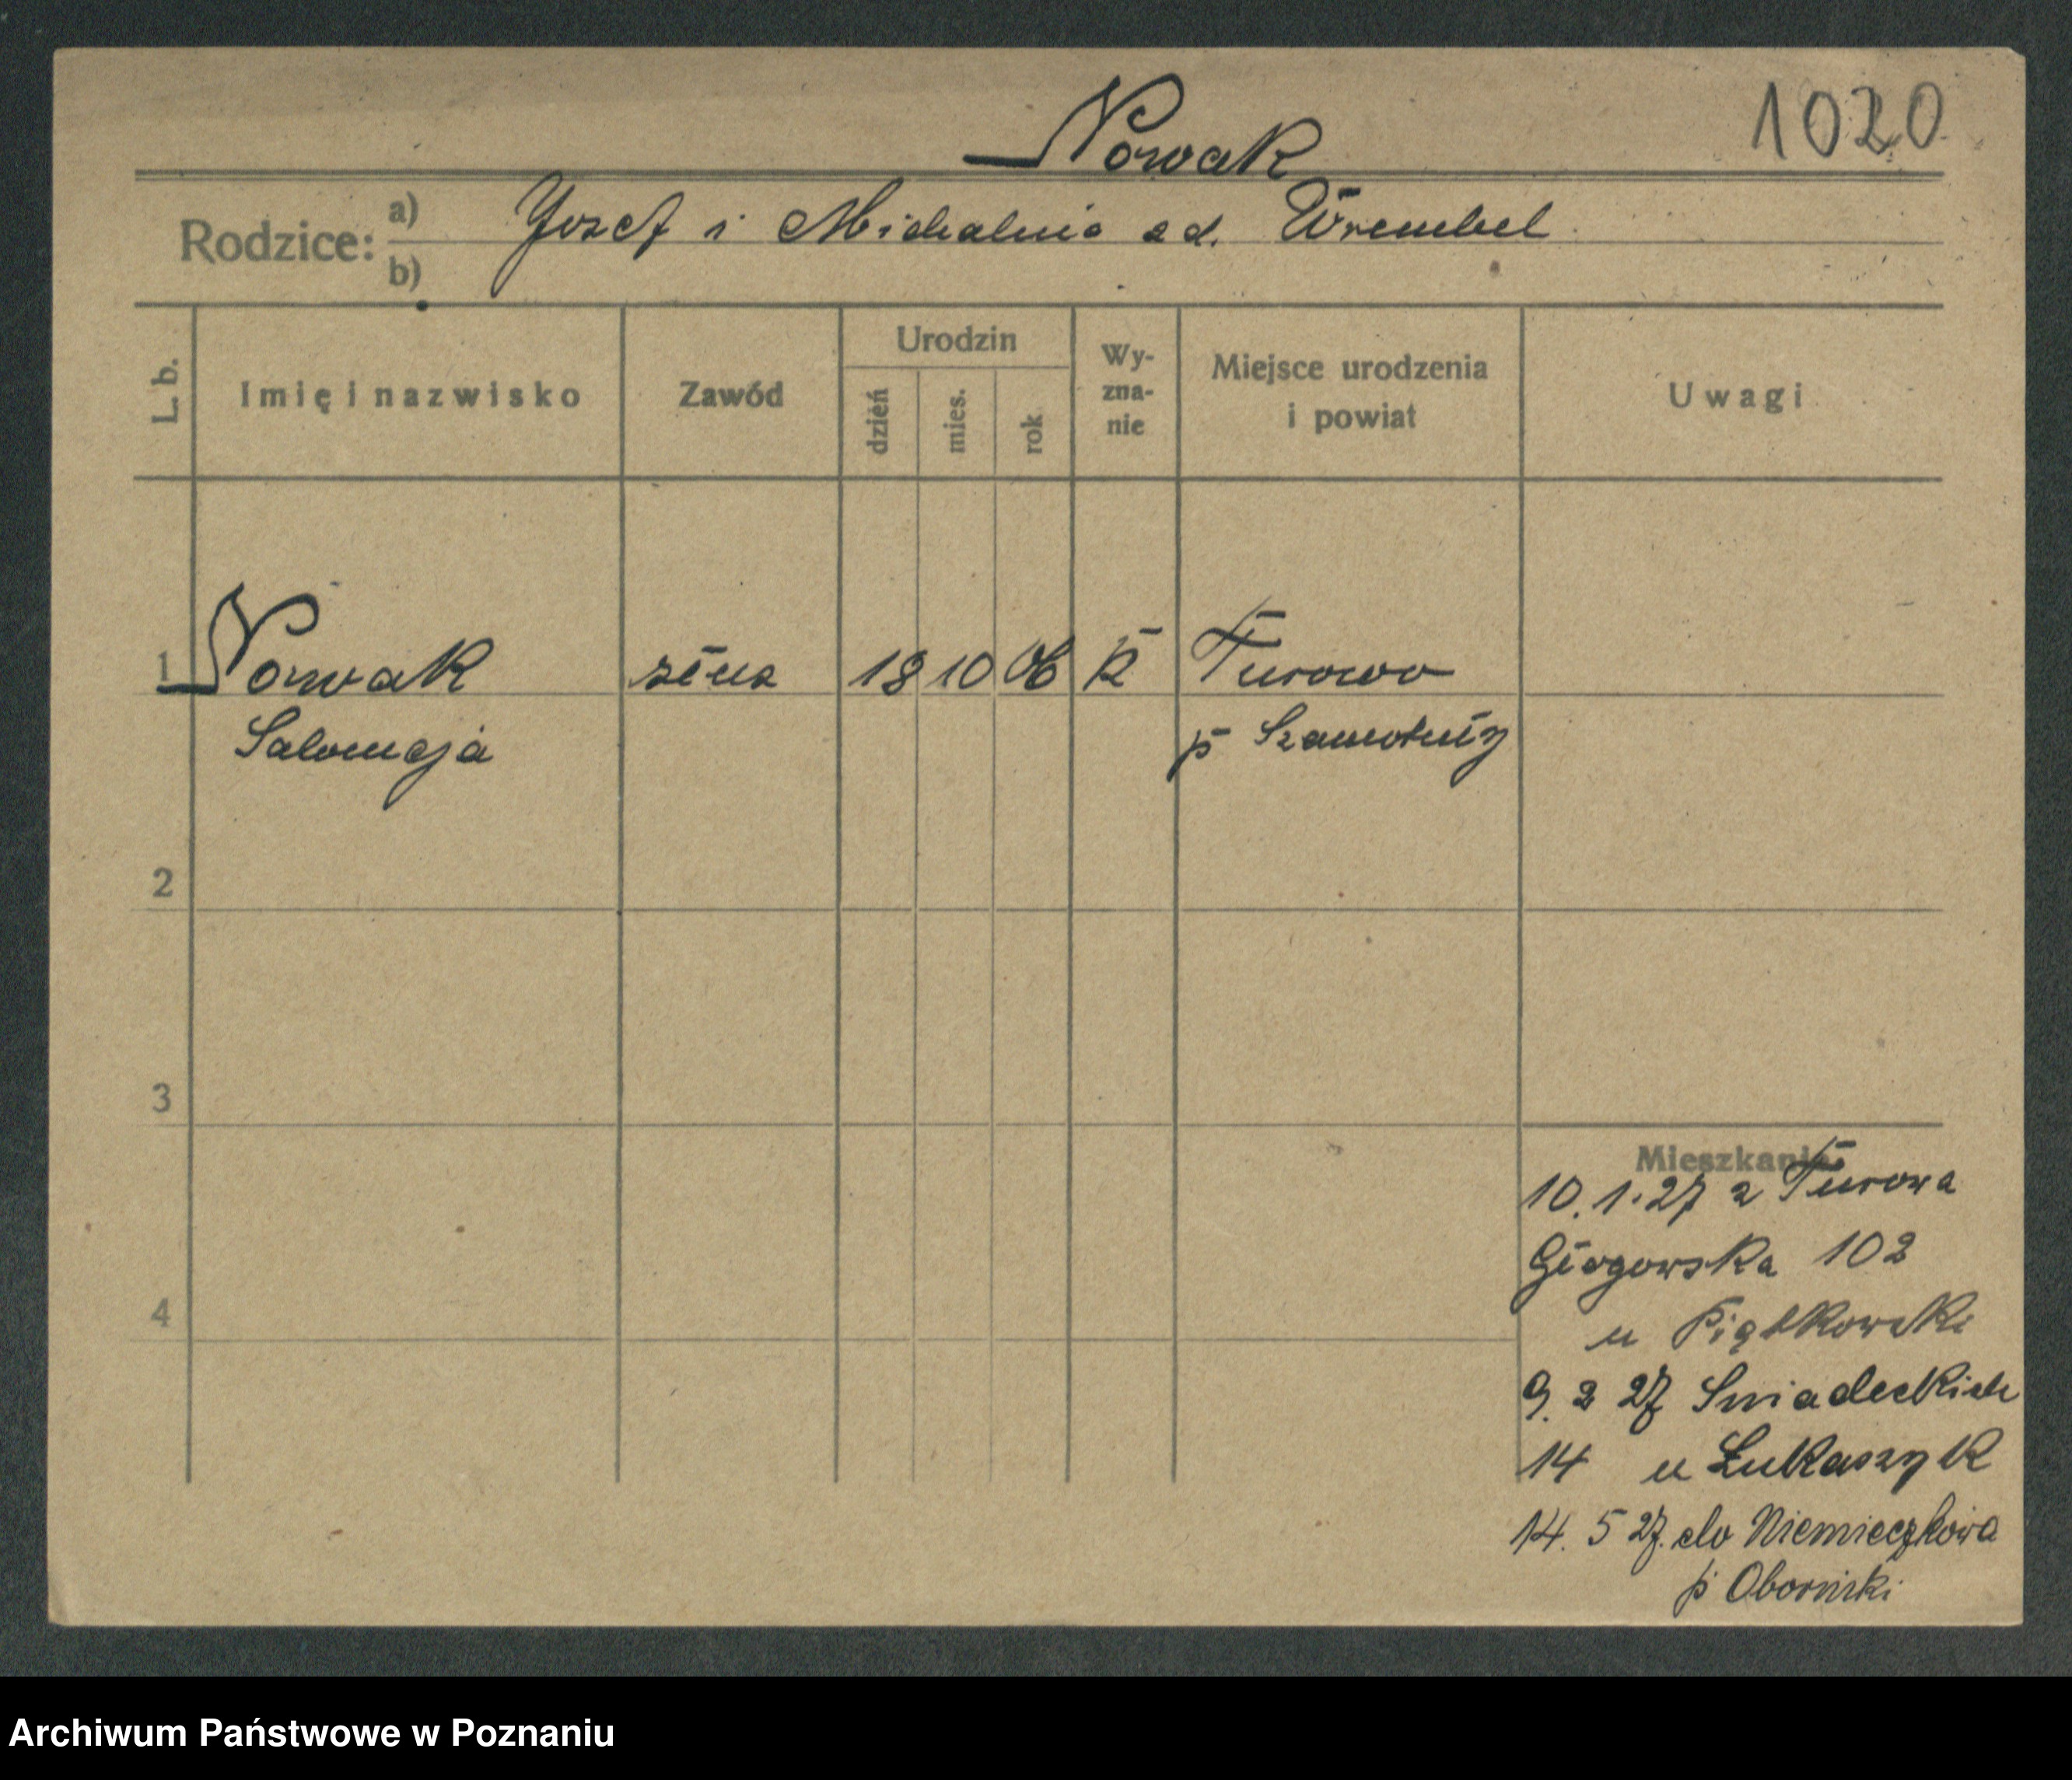 Nowak
1020
Rodzice: a) Jozef i Michalina zd. Wrembel
b)
L. b.
Imię i nazwisko
Zawód
Urodzin
dzień
mies.
rok
Wy-
zna-
nie
Miejsce urodzenia
i powiat
Uwagi
1 Nowak 18 10 06 K Turowo
Salomeja p Szamotuły
2
3
4
Mieszkanie
10.1.27 z Turowa
Głogowska 102
u Piątkowski
9. 2 27 Sniadeckich
14 u Łukaszyk
14. 5 27. do Niemieczkowa
p Obornicki
Archiwum Państwowe w Poznaniu